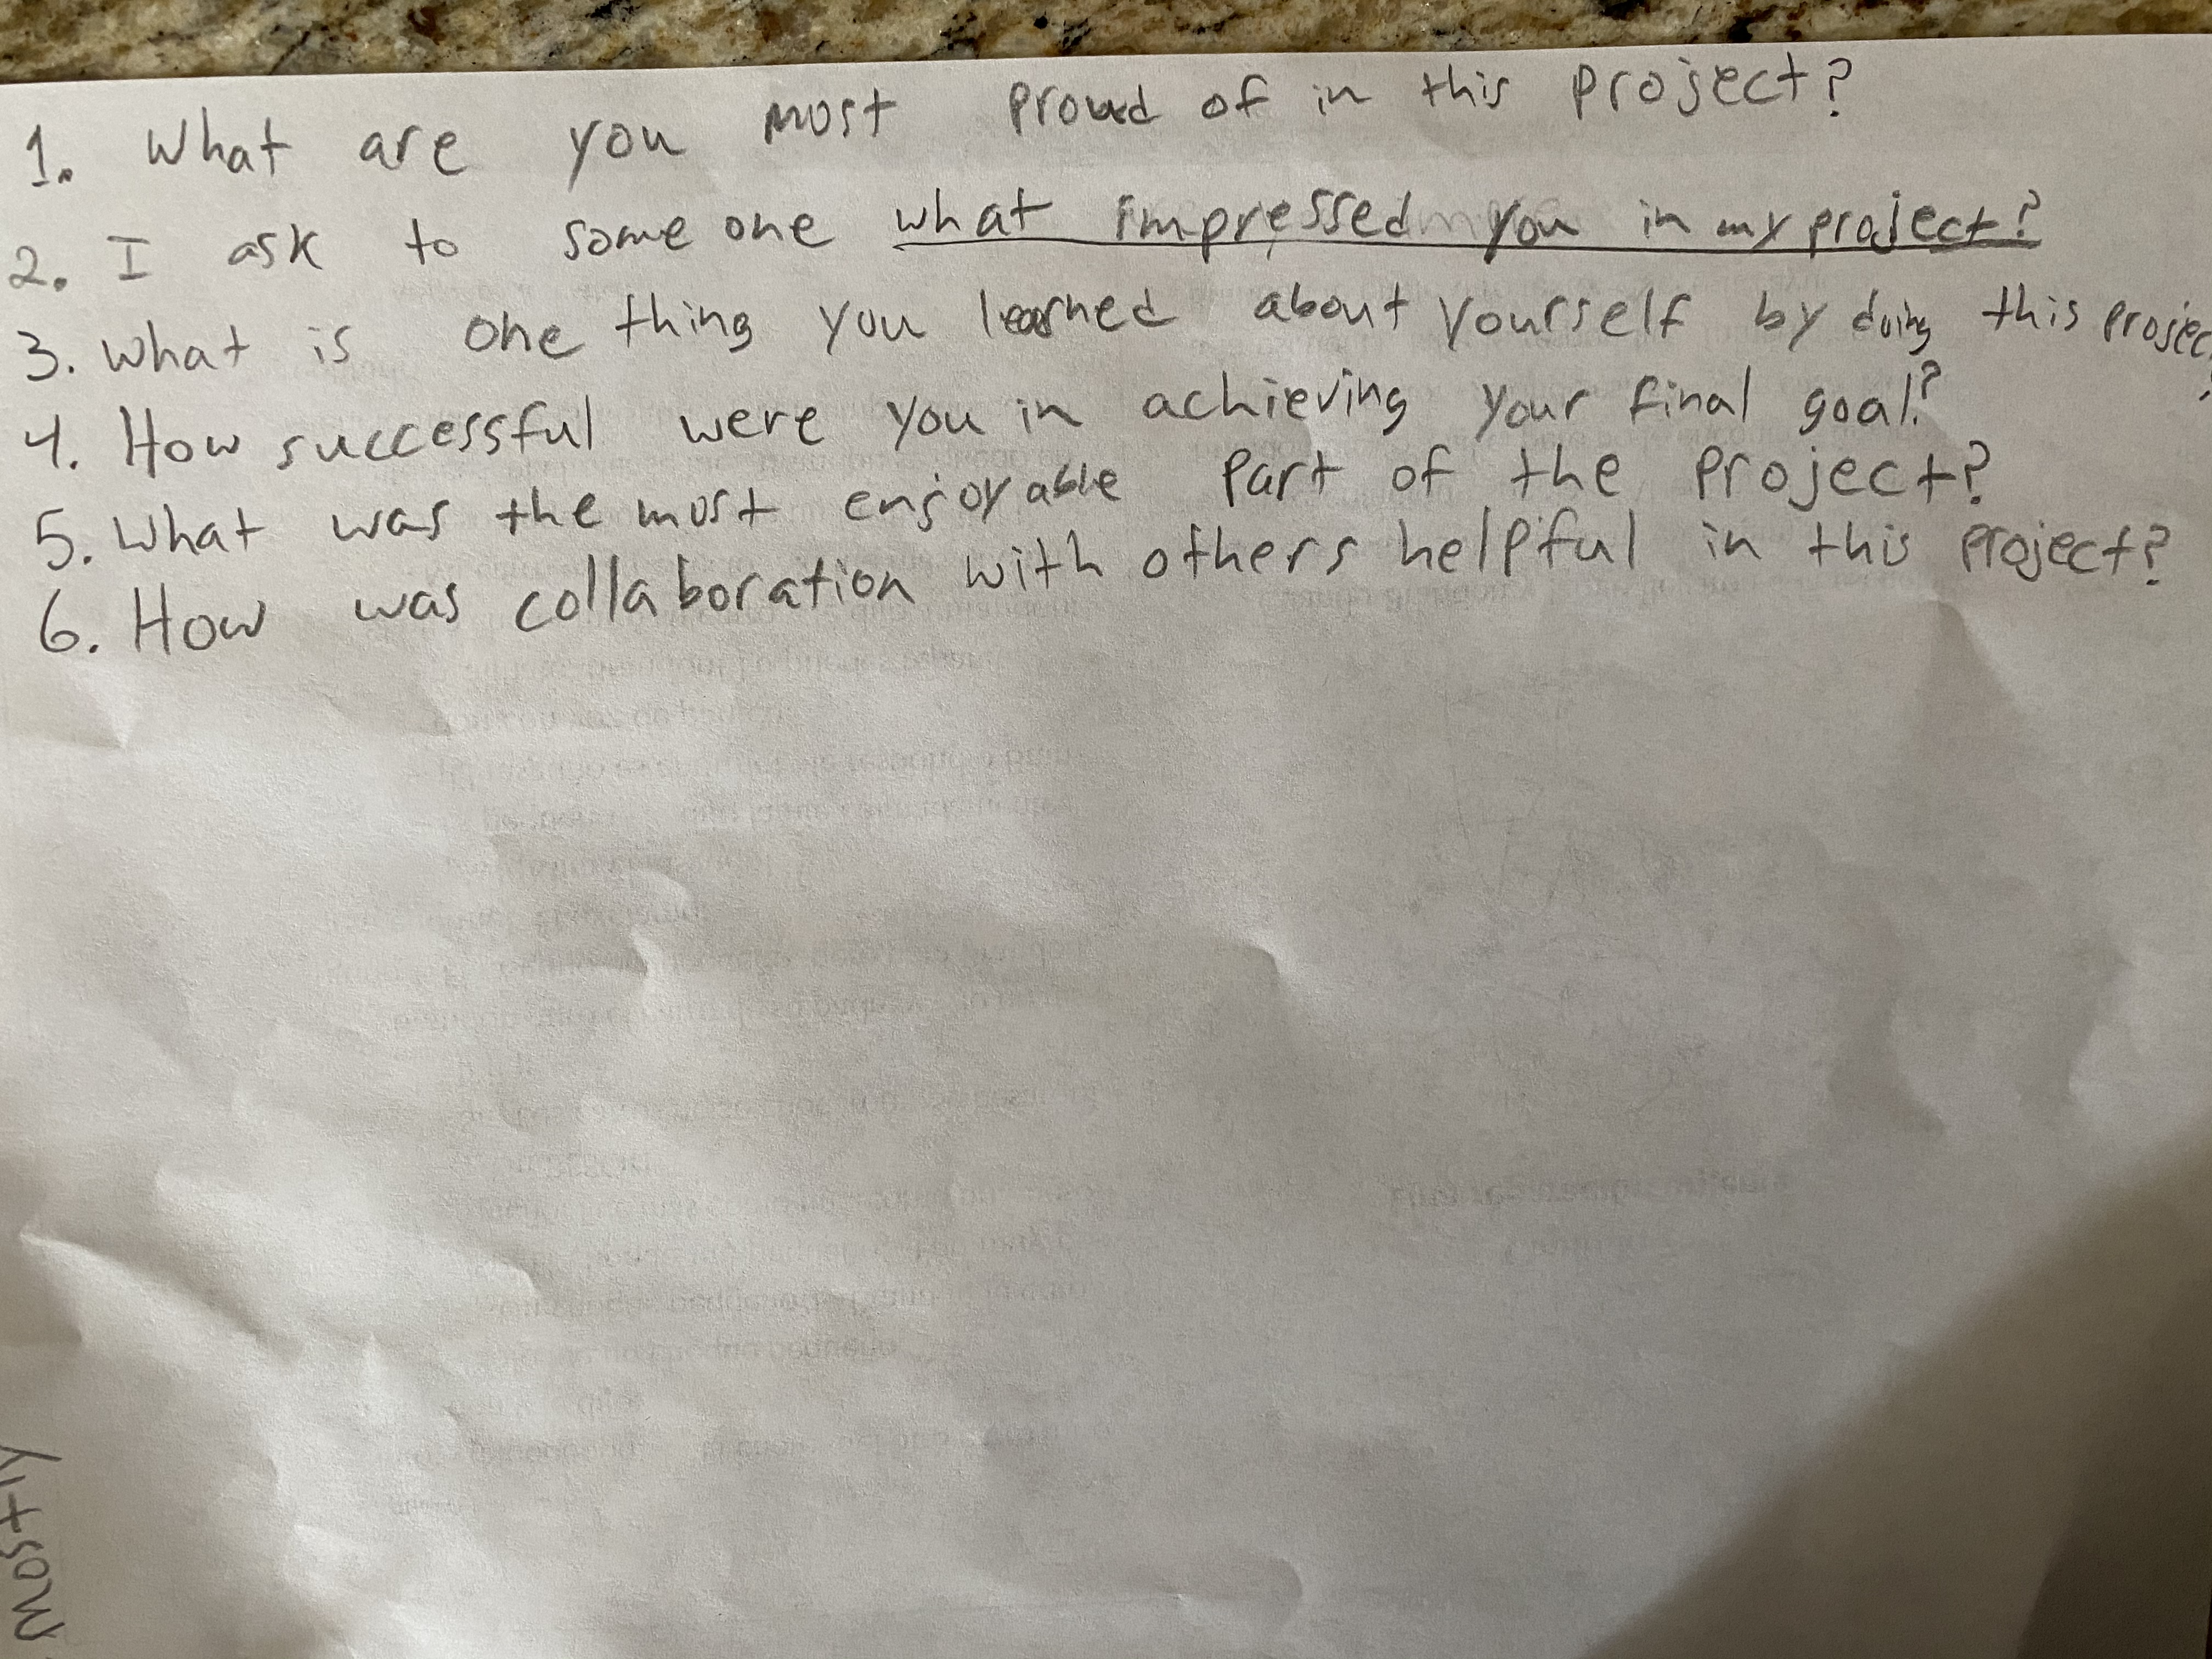 1. What are you most proud of in this project?
2. I ask to some one what impressed you in my project?
3. What is one thing you learned about yourself by doing this project?
4. How successful were you in achieving your final goal?
5. What was the most enjoyable part of the project?
6. How was collaboration with others helpful in this project?
Mostly